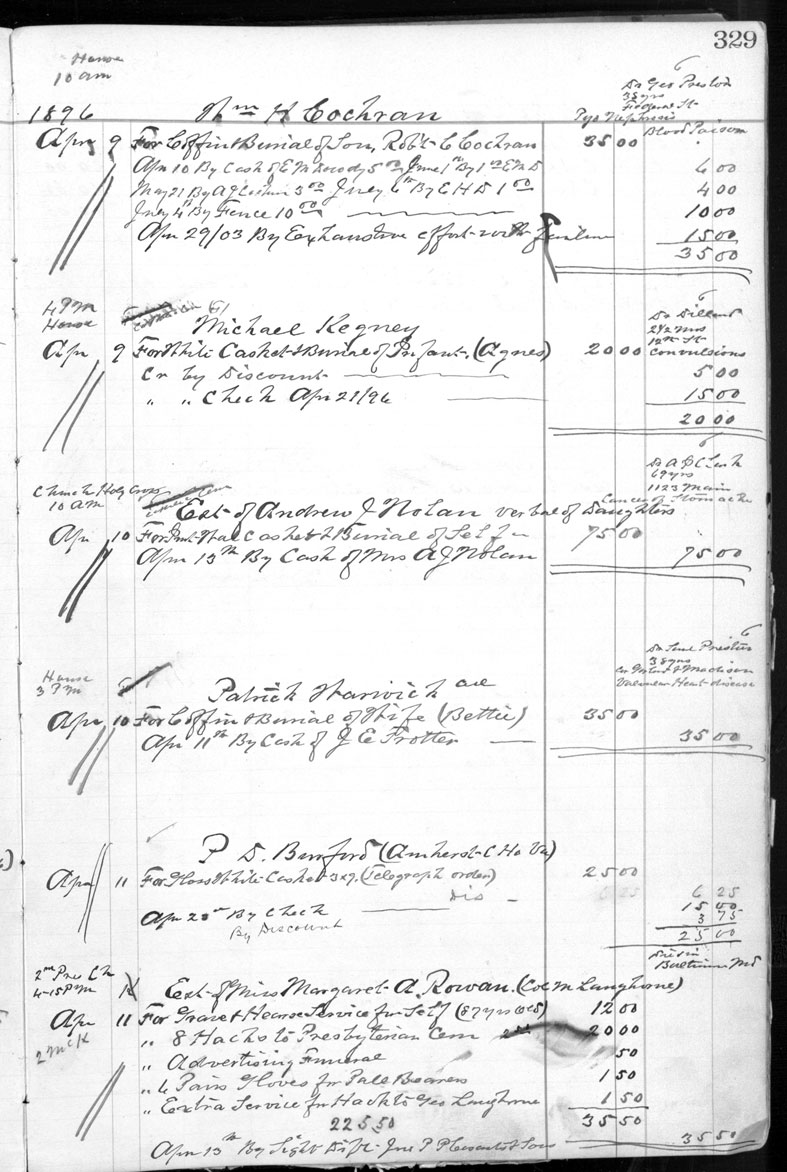 329
House
10 am
Dr Geo Preston
35 yrs
Federal St
1896 Wm H Cochran
Pyo Nephrosis
Blood Poison
Apr 9 For Coffin & Burial of Son, Robt C Cochran 35 00
Apr 10 By Cash of E M 5 00, June 1st By 1 00 E M D 6 00
May 21 By A J 3 00 July 6th By E H D 1 00 4 00
July 4th By Fence 10 00 10 00
Apr 29/03 By Exhaustive effort with 15 00
35 00
4 PM
House
Dr Dillard
2 1/2 mos
12th St
Michael Kegney
convulsions
Apr 9 For White Casket & Burial of Infant (Agnes) 20 00
Cr by Discount 5 00
" " Check Apr 21/96 15 00
20 00
Church Holy Cross
10 AM
69 yrs
1123 Main
Cancer of Stomache
Est of Andrew J Nolan verbal of Daughters
Apr 10 For Casket & Burial of Self 75 00
Apr 13th By Cash of Mrs A J Nolan 75 00
House
3 PM
Preston
38 yrs
& Madison
Valvular Heart disease
Patrick Harvich
Apr 10 For Coffin & Burial of Wife (Bettie) 35 00
Apr 11th By Cash of J E Trotter 35 00
P D. Burford (Amherst C Ho Va)
Apr 11 For Gloss White Casket 3x9. (Telegraph order) 25 00
Dis 6 25
Apr 20th By Check 15 00
By Discount 3 75
25 00
2nd Pres Ch
4-15 PM
Died in
Baltimore Md
Est of Miss Margaret A. Rowan. (Col M Langhorne)
Apr 11 For Grave & Hearse Service for Self (87 yrs old) 12 00
" 8 Hacks to Presbyterian Cem 20 00
" Advertising Funeral 50
" 6 Pairs Gloves for Pall Bearers 1 50
" Extra Service for Hack to Geo Langhorne 1 50
35 50
22 5 50
Apr 13th By Sight Dift Jno P Pleasants & Sons 35 50